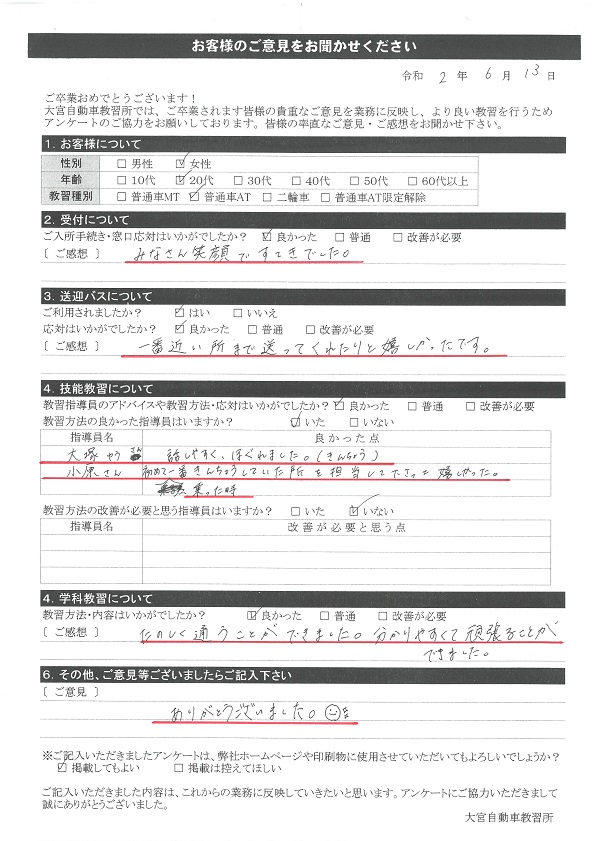 お客様のご意見をお聞かせください
令和 2 年 6 月 13 日
ご卒業おめでとうございます！
大宮自動車教習所では、ご卒業されます皆様の貴重なご意見を業務に反映し、より良い教習を行うため
アンケートのご協力をお願いしております。皆様の率直なご意見・ご感想をお聞かせ下さい。
1. お客様について
性別 □ 男性 ☑ 女性
年齢 □ 10代 ☑ 20代 □ 30代 □ 40代 □ 50代 □ 60代以上
教習種別 □ 普通車MT ☑ 普通車AT □ 二輪車 □ 普通車AT限定解除
2. 受付について
ご入所手続き・窓口応対はいかがでしたか？ ☑ 良かった □ 普通 □ 改善が必要
〔 ご感想 〕 みなさん笑顔ですてきでした。
3. 送迎バスについて
ご利用されましたか？ ☑ はい □ いいえ
応対はいかがでしたか？ ☑ 良かった □ 普通 □ 改善が必要
〔 ご感想 〕 一番近い所まで送ってくれたりと嬉しかったです。
4. 技能教習について
教習指導員のアドバイスや教習方法・応対はいかがでしたか？ ☑ 良かった □ 普通 □ 改善が必要
教習方法の良かった指導員はいますか？ ☑ いた □ いない
指導員名 良かった点
大塚 さん 話しやすく、ほぐれました。(きんちょう)
小原さん 初めて一番きんちょうしていた所を担当して下さって嬉しかった。
乗った時
教習方法の改善が必要と思う指導員はいますか？ □ いた ☑ いない
指導員名 改善が必要と思う点
4. 学科教習について
教習方法・内容はいかがでしたか？ ☑ 良かった □ 普通 □ 改善が必要
〔 ご感想 〕 たのしく通うことができました。分かりやすくて頑張ることが
できました。
6. その他、ご意見等ございましたらご記入下さい
〔 ご意見 〕
ありがとうございました。
※ご記入いただきましたアンケートは、弊社ホームページや印刷物に使用させていただいてもよろしいでしょうか？
☑ 掲載してもよい □ 掲載は控えてほしい
ご記入いただきました内容は、これからの業務に反映していきたいと思います。アンケートにご協力いただきまして
誠にありがとうございました。
大宮自動車教習所